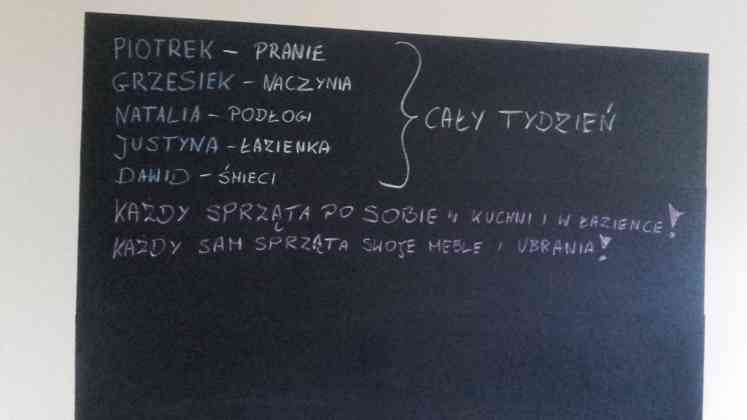 PIOTREK – PRANIE
GRZESIEK – NACZYNIA
NATALIA – PODŁOGI
JUSTYNA – ŁAZIENKA
DAWID – ŚMIECI
CAŁY TYDZIEŃ
KAŻDY SPRZĄTA PO SOBIE W KUCHNI I W ŁAZIENCE!
KAŻDY SAM SPRZĄTA SWOJE MEBLE I UBRANIA!